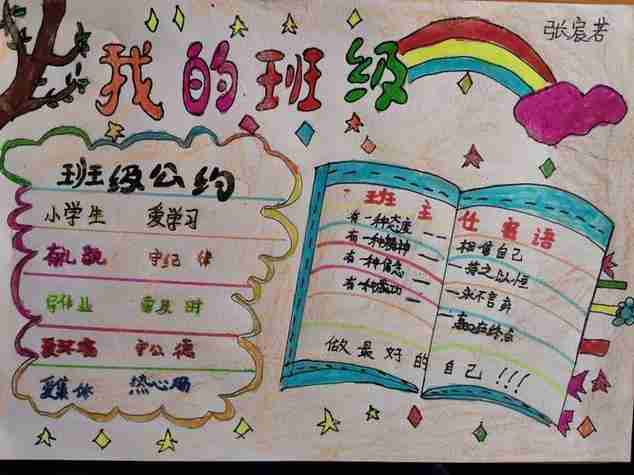 张宸若
我的班级
班级公约
小学生 爱学习
有礼貌 守纪律
写作业 需及时
爱环境 守公德
爱集体 热心肠
班主任寄语
有一种态度——相信自己
有一种精神——持之以恒
有一种信念——永不言弃
有一种感动——
做最好的自己!!!